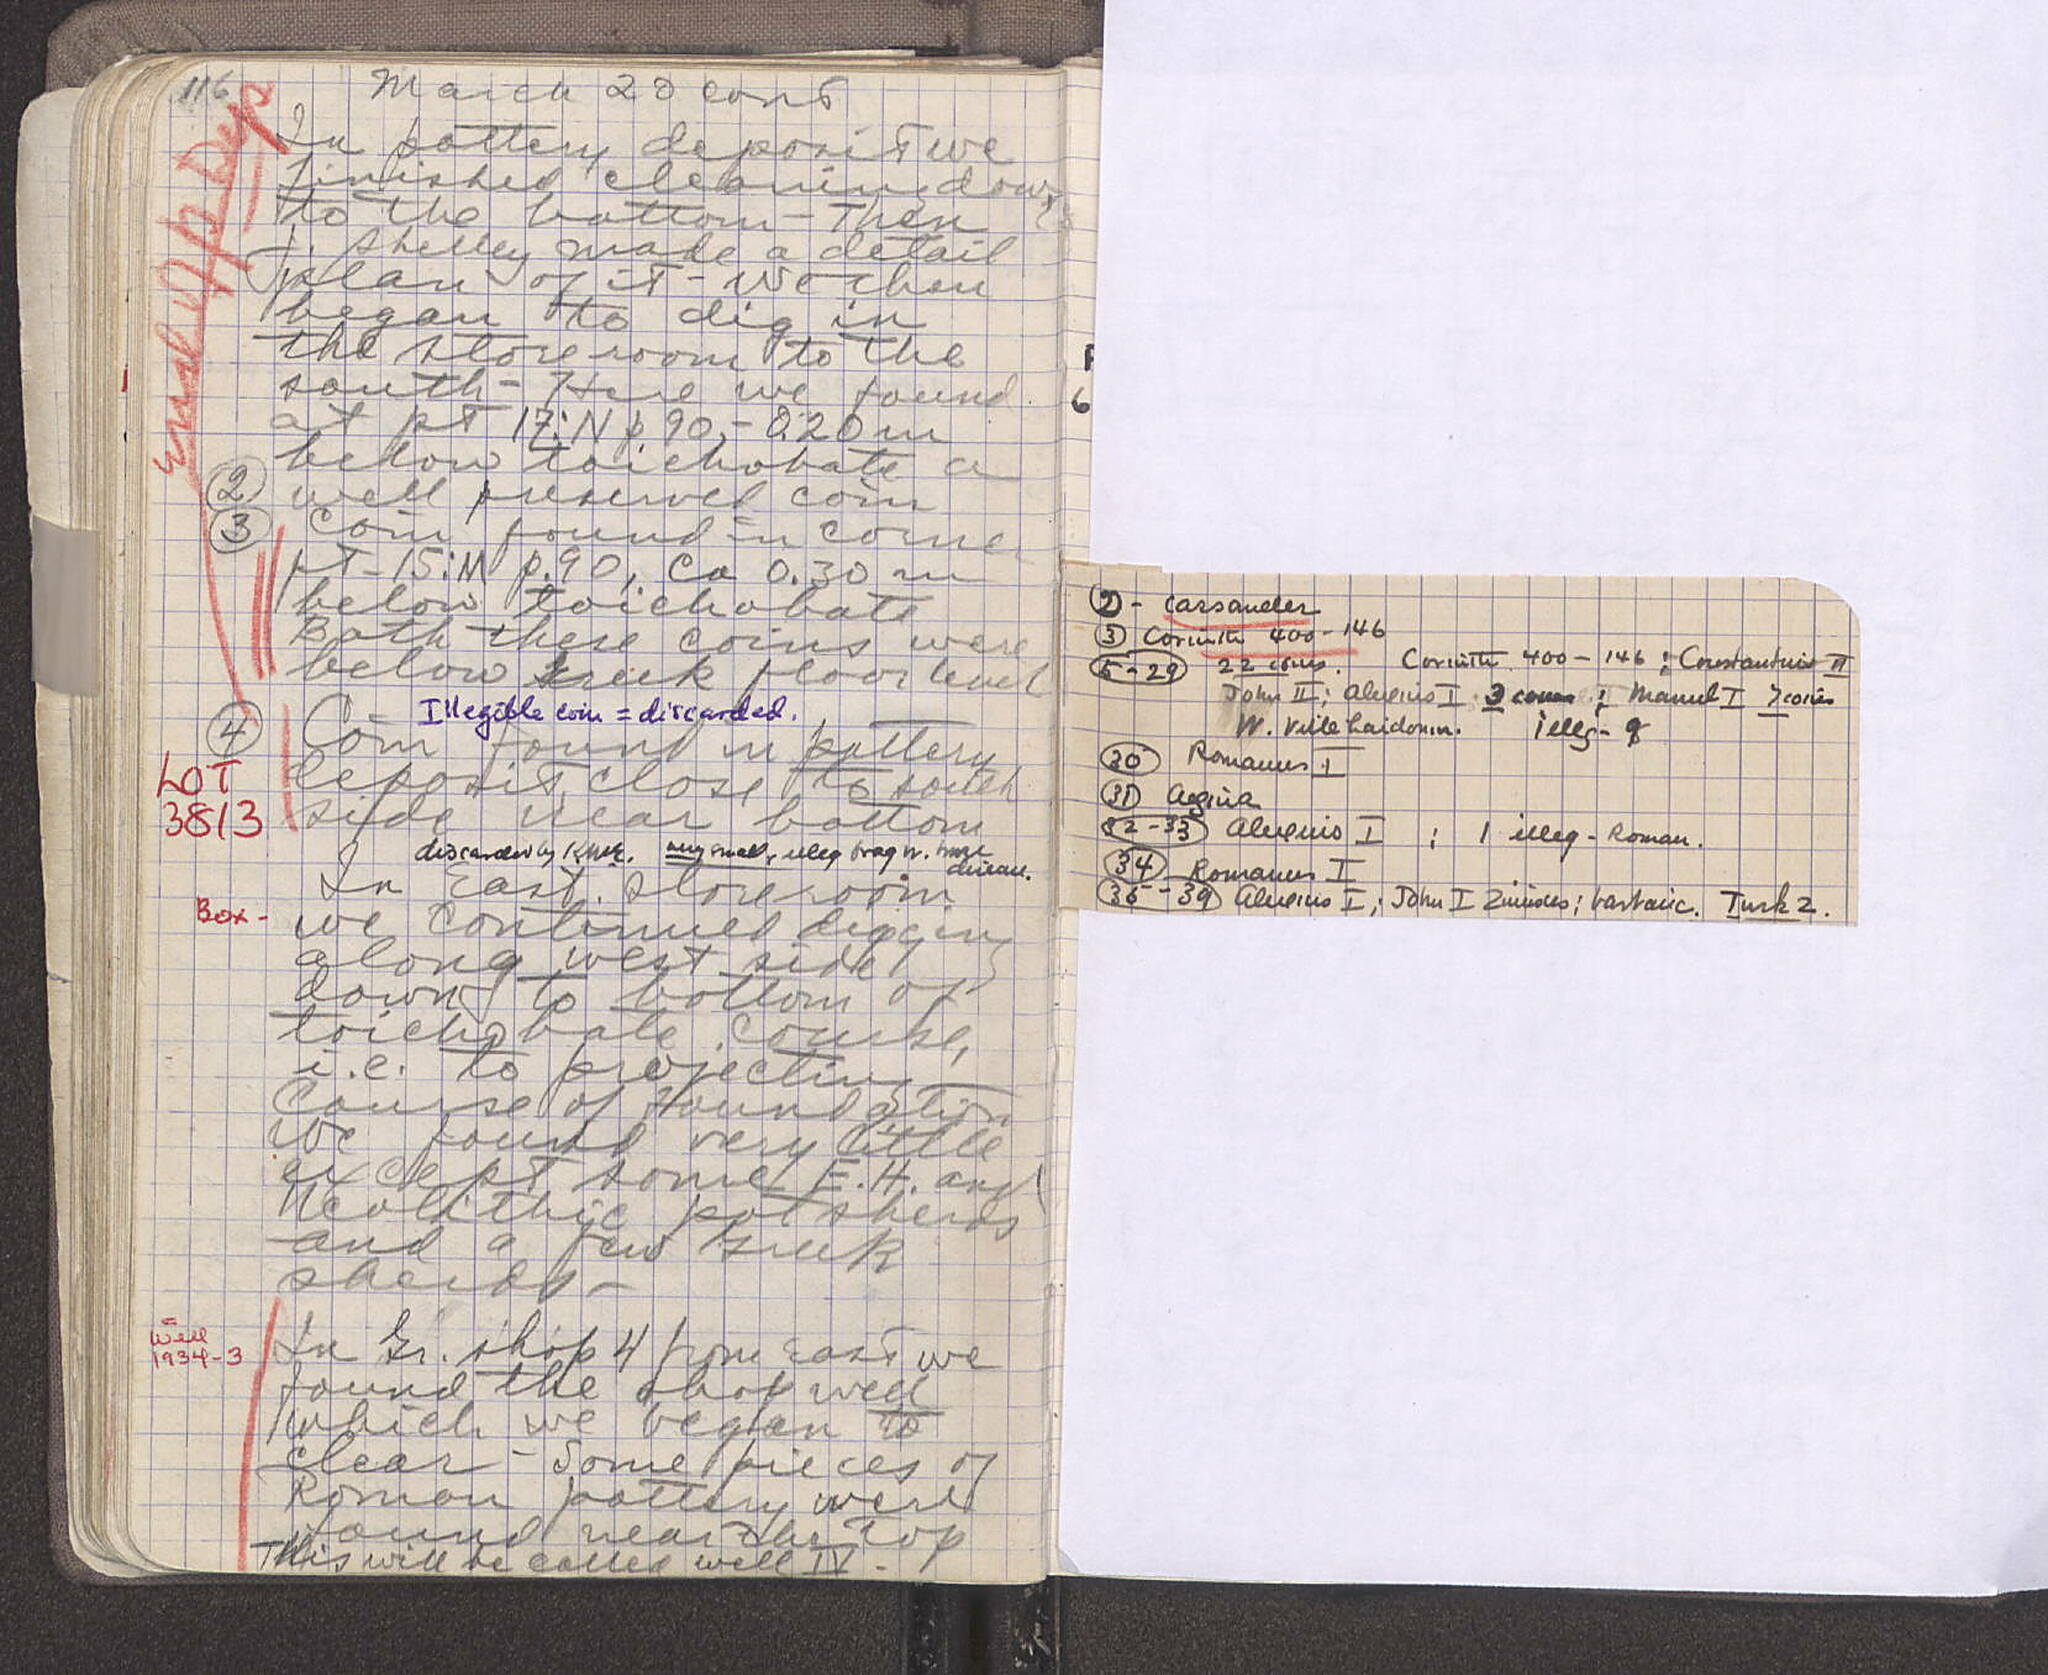 116
March 20 cont
In pottery deposit we
finished cleaning down
to the bottom - Then
J. Shelley made a detail
plan of it - We then
began to dig in
the storeroom to the
south - Here we found
at pt 17:N p. 90, - 0.20 m
below toichobate a
② well preserved coin
③ Coin found in corner
pt - 15:M p. 90, Ca 0.30 m
below toichobate
Both these coins were
below Greek floor level
Illegible coin = discarded.
④ Coin found in pottery
deposit, close to south
side near bottom
LOT
3813
discarded by very small, illeg fragm.
disease.
In East. storeroom
Box -
we continued digging
along west side
down to bottom of
toichobate course,
i.e. to projecting
course of foundation
We found very little
except some E.H. and
Neolithic potsherds
and a few Greek
sherds -
= Well
1934-3
In Gr. shop 4 from East we
found the shop well
which we began to
clear - Some pieces of
Roman pottery were
found near the top
This will be called well IV -
② - Cassander
③ Corinth 400-146
5-29 22 coins. Corinth 400-146; Constantine VII
John II; Alexius I 3 coins; Manuel I 7 coins
W. Villehardouin. illeg - 8
30 Romanus I
31 Aegina
32-33 Alexius I; 1 illeg - Roman.
34 Romanus I
35-39 Alexius I; John I Zimisces; Turk 2.
6